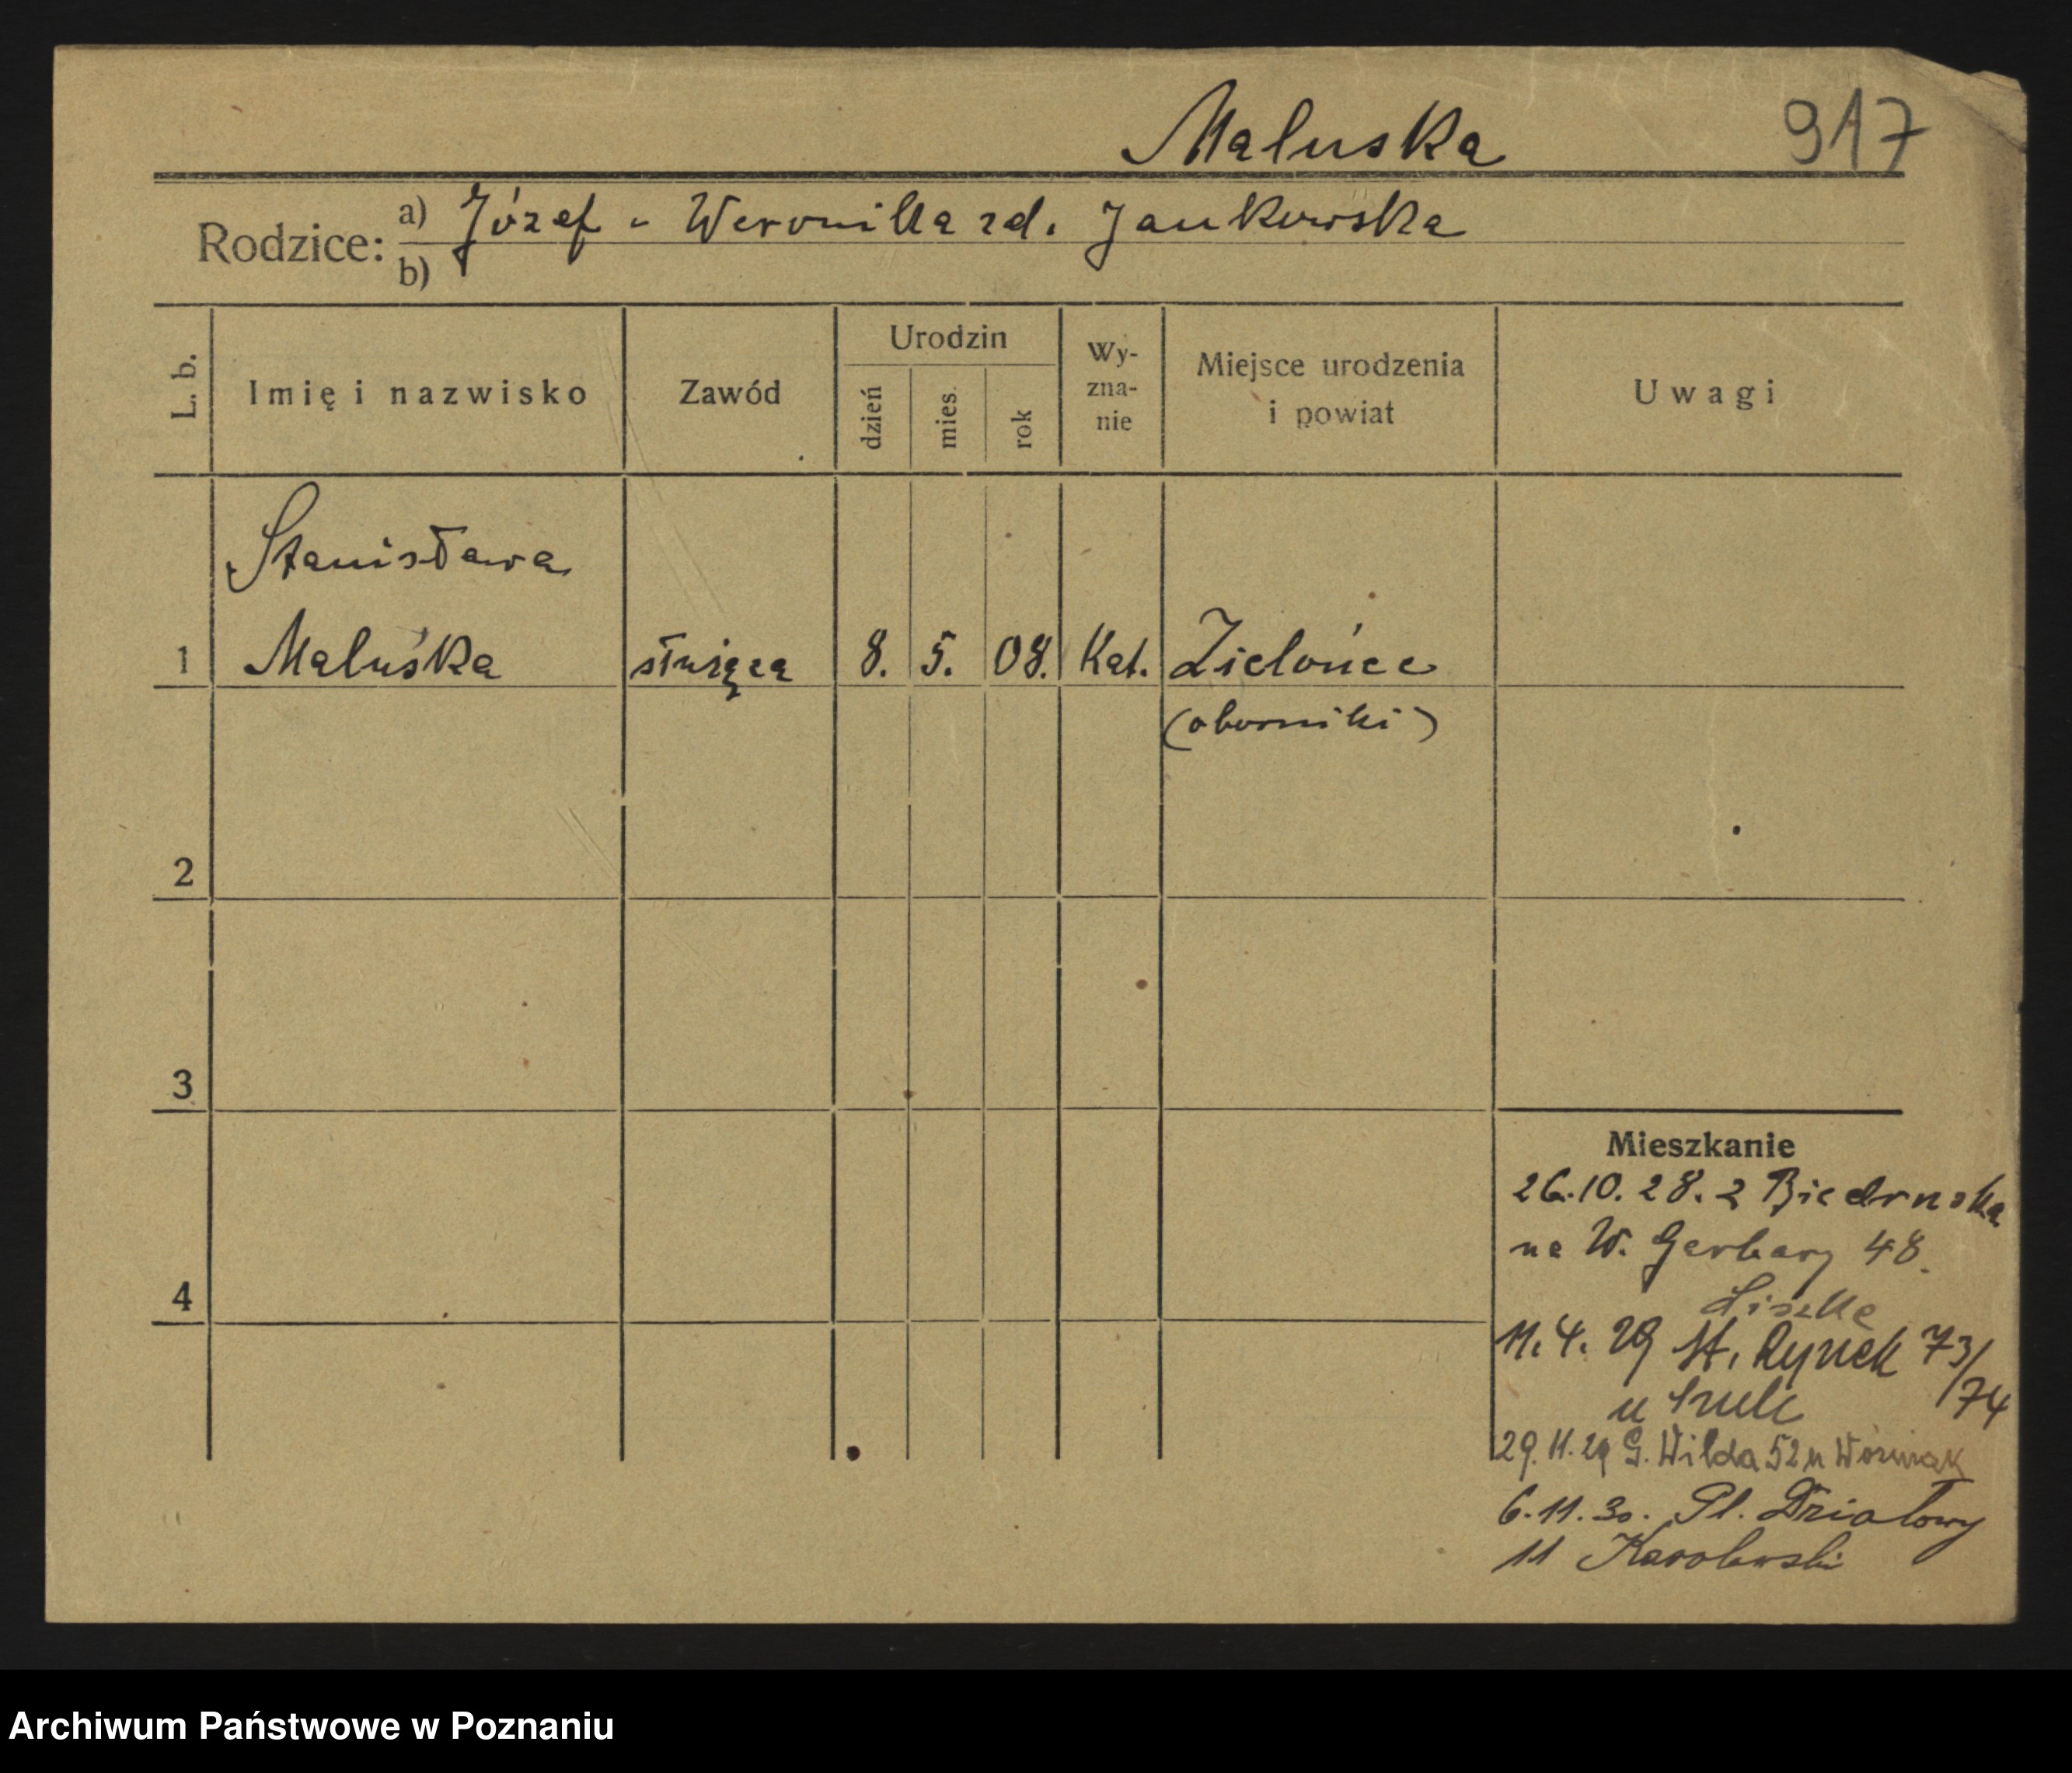 Maluska 917
Rodzice: a) Józef - Weronika zd. Jankowska
b)
L. b. Imię i nazwisko Zawód Urodzin dzień mies. rok Wy-zna-nie Miejsce urodzenia i powiat Uwagi
Stanisława
1 Maluśka służąca 8. 5. 08. Kat. Zielońce
(oborniki)
2
3
Mieszkanie
26.10.28. z Biedruska
na W. Garbary 48.
4
11.4.29 St. Rynek 73/74
u
29.11.29 G. Wilda 52 u Woźniak
6.11.30. Pl. Działowy
11 Karolewski
Archiwum Państwowe w Poznaniu